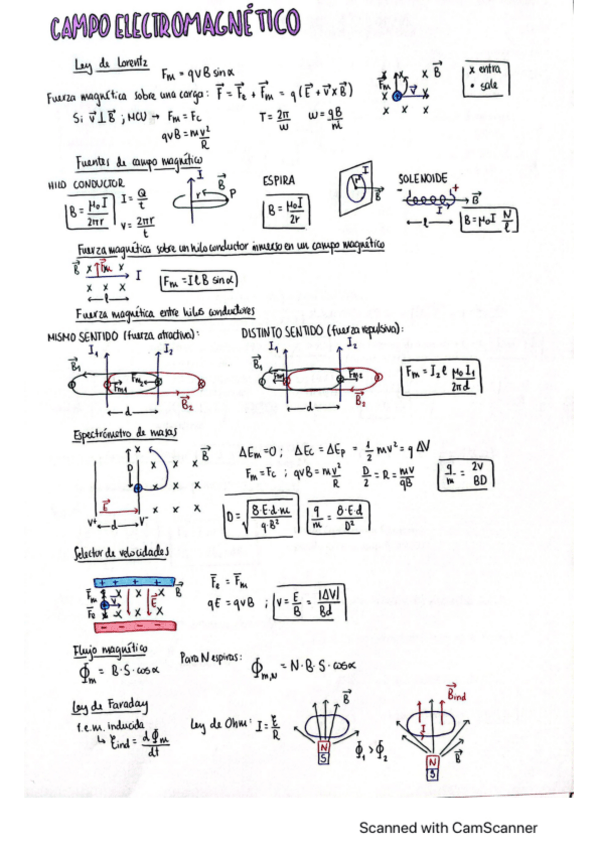 CAMPO ELECTROMAGNÉTICO
Ley de Lorentz
Fm = qvB sinα
Fuerza magnética sobre una carga: F⃗ = F⃗e + F⃗m = q(E⃗ + v⃗xB⃗)
Si v⃗⊥B⃗ ; MCU → Fm = Fc
qvB = m v²/R
T = 2π/ω ω = qB/m
Fm x x B⃗
v⃗
x x x
x entra
• sale
Fuentes de campo magnético
HILO CONDUCTOR
B = μ₀I/2πr
I = Q/t
v = 2πr/t
I B⃗ r P
ESPIRA
B = μ₀I/2r
I r B⃗
SOLENOIDE
- + B⃗
I
l
B = μ₀I N/l
Fuerza magnética sobre un hilo conductor inmerso en un campo magnético
B⃗ x Fm x I
x x x
l
Fm = I l B sinα
Fuerza magnética entre hilos conductores
MISMO SENTIDO (fuerza atractiva):
I₁ I₂
B⃗₁ Fm₂ Fm₁ B⃗₂
d
DISTINTO SENTIDO (fuerza repulsiva):
I₁ I₂
B⃗₁ Fm₁ Fm₂ B⃗₂
d
Fm = I₂ l μ₀I₁/2πd
Espectrómetro de masas
x B⃗
D x x x
x x
E⃗ x x x
V⁺ d V⁻
ΔEm = 0 ; ΔEc = ΔEp = 1/2 mv² = qΔV
Fm = Fc ; qvB = m v²/R D/2 = R = mv/qB
q/m = 2V/BD
D = √(8·E·d·m/q·B²)
q/m = 8·E·d/D²
Selector de velocidades
+ + + +
F⃗m x x x B⃗
v⃗ E⃗
F⃗e x x x
- - - -
F⃗e = F⃗m
qE = qvB ; v = E/B = |ΔV|/Bd
Flujo magnético
Φm = B·S·cosα
Para N espiras: Φm,N = N·B·S·cosα
Ley de Faraday
f.e.m. inducida
↳ ξind = dΦm/dt
Ley de Ohm: I = ξ/R
B⃗
N
S
Φ₁ > Φ₂
B⃗ind
I
N
S
B⃗
Scanned with CamScanner